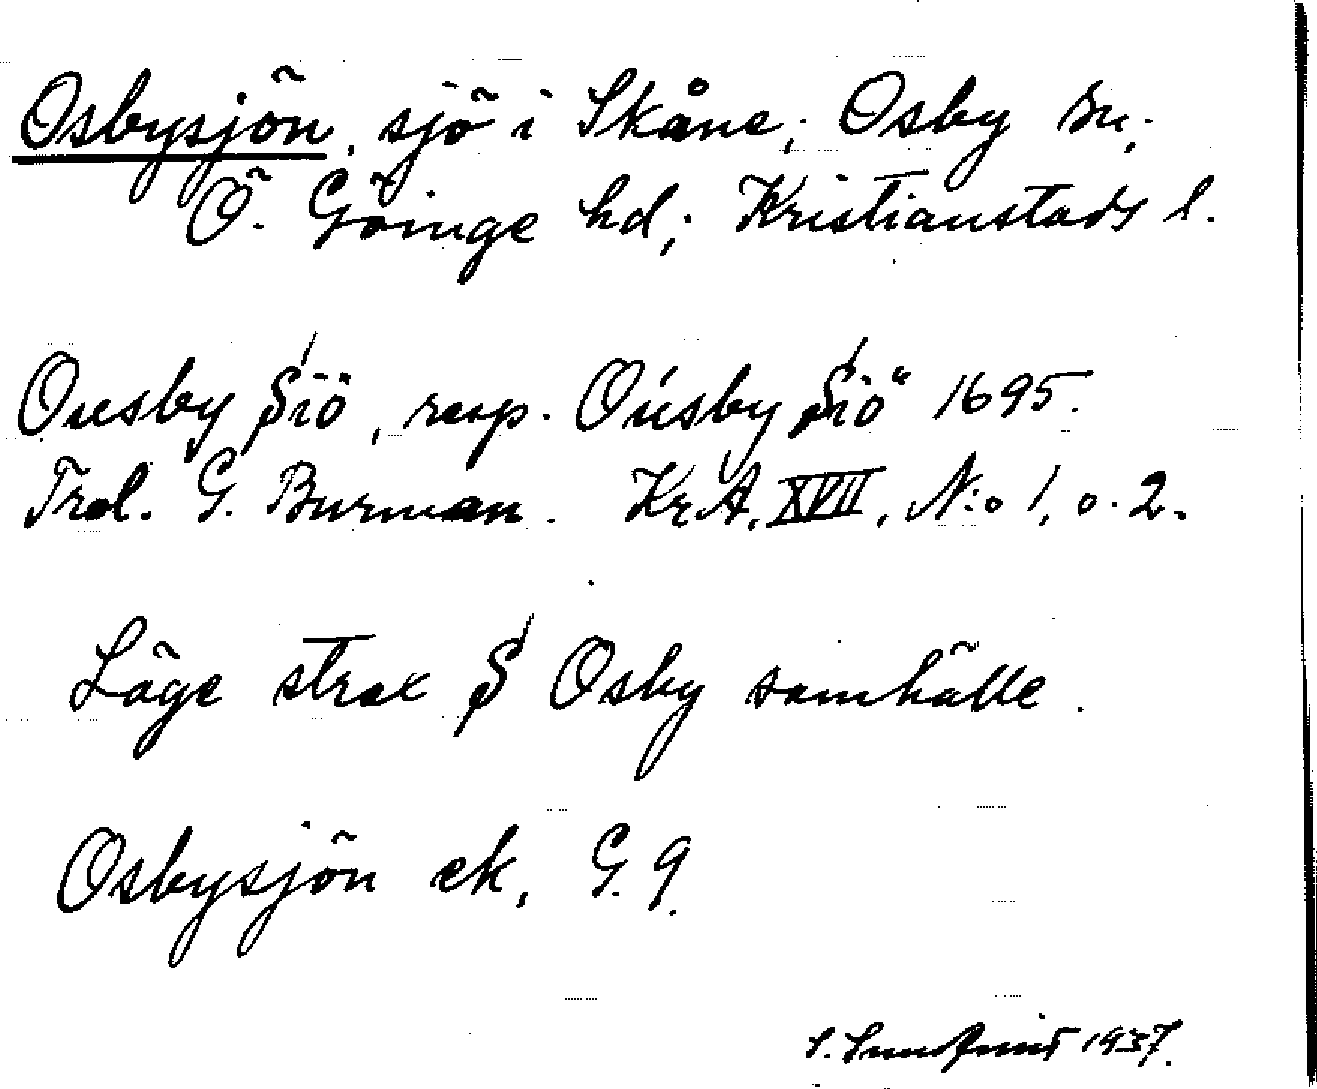 Osbysjön, sjö i Skåne; Osby sn;
Ö. Göinge hd; Kristianstads l.
Ousby Siö, resp. Oúsby Siö" 1695.
Trol. G. Burman. Kr.A. XVII, N:o 1, o. 2.
Läge strax S Osby samhälle.
Osbysjön ek, G. 9.
1937.